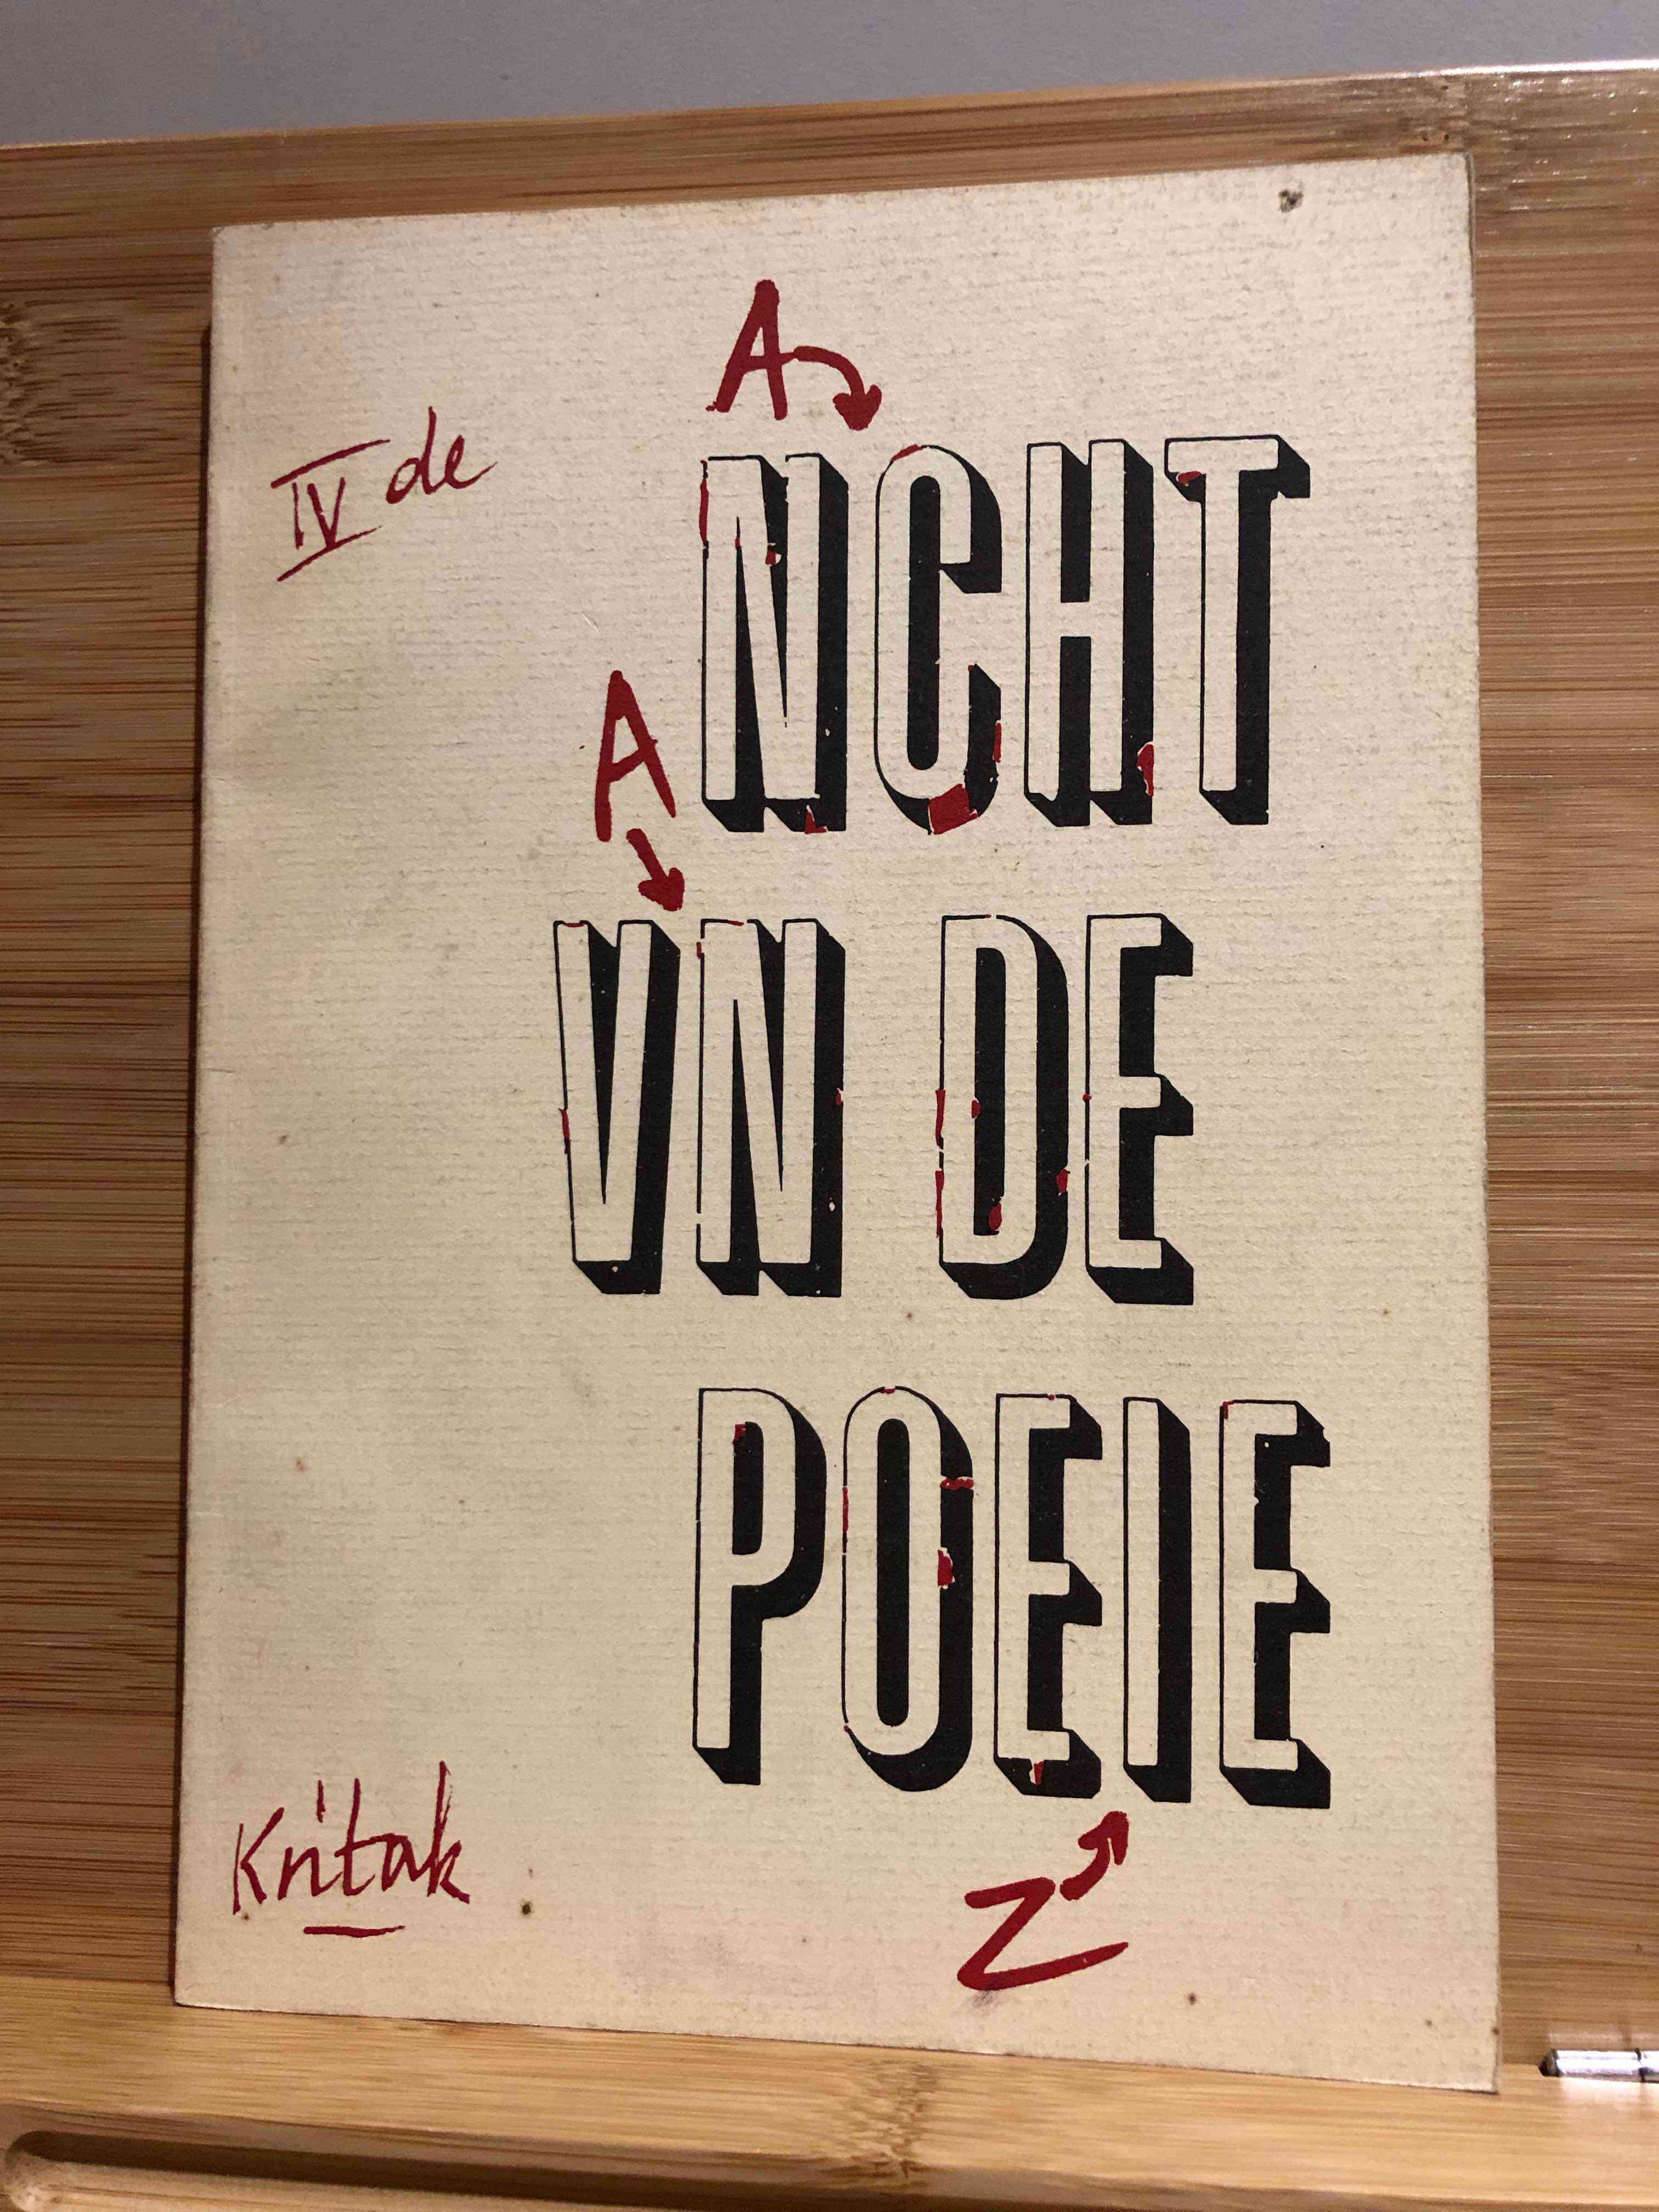 A
IV de
NCHT
A
VN DE
POEIE
Z
Kritak